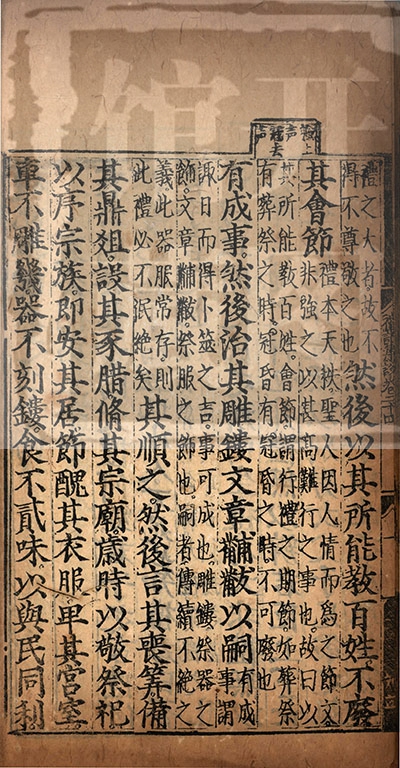 禮之大者故不
得不尊敬之也
然後以其所能教百姓不廢
其會節
禮本天秩聖人因人情而為之節文
非強之以甚高難行之事也故曰以
其所能敎百姓會節謂行禮之期節如葬祭
有葬祭之時冠昏有冠昏之時不可廢也
有成事然後治其雕鏤文章黼黻以嗣
有成
事謂
諏日而得卜筮之吉事可成也雕鏤祭器之
飾文章黼黻祭服之飾也嗣者傳續不絕之
義此器服常存則
此禮必不泯絕矣
其順之然後言其喪筭備
其鼎俎設其豕腊脩其宗廟歲時以敬祭祀
以序宗族即安其居節醜其衣服卑其宮室
車不雕幾器不刻鏤食不貳味以與民同利